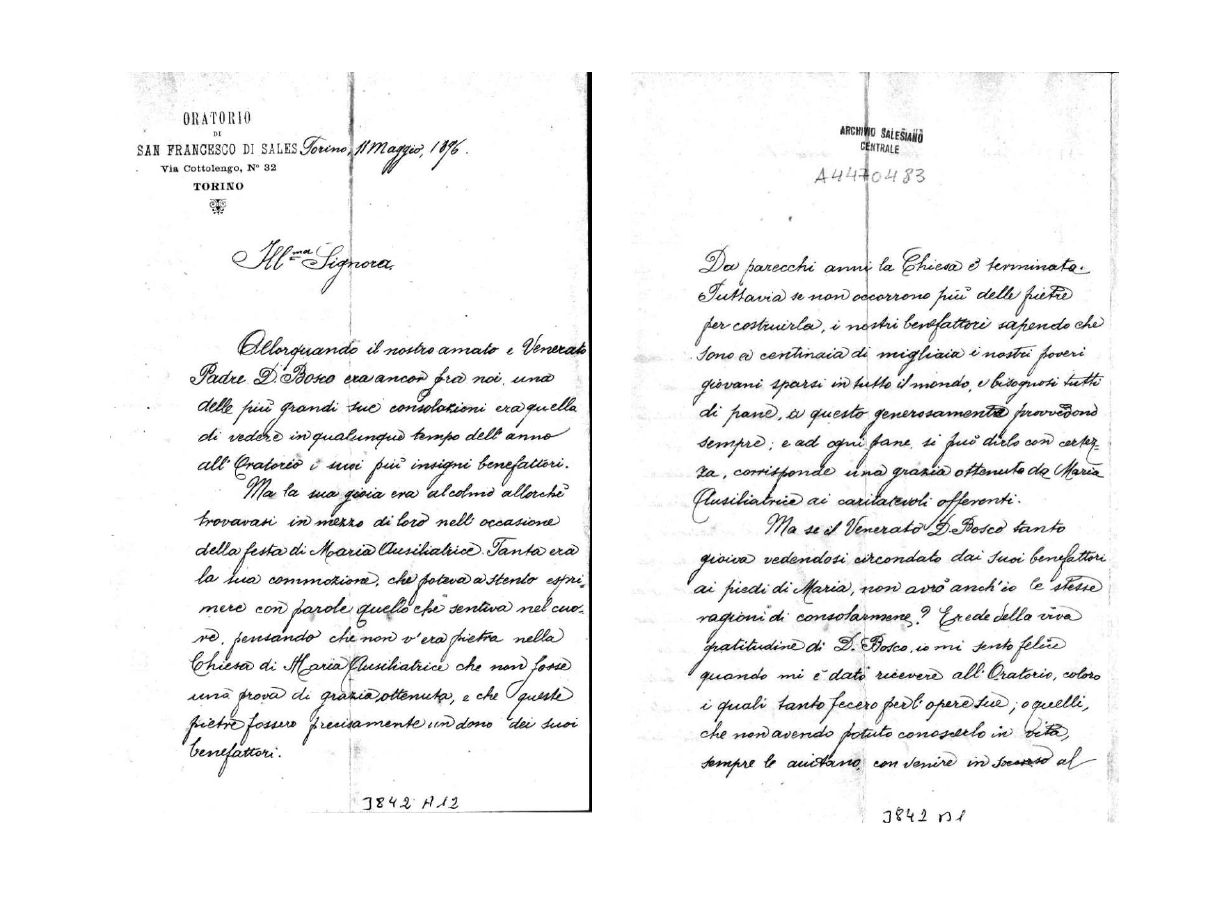 ORATORIO
DI
SAN FRANCESCO DI SALES
Via Cottolengo, Nº 32
TORINO
Torino, 11 Maggio, 1896.
Ill.ma Signora,
Allorquando il nostro amato e Venerato
Padre D. Bosco era ancor fra noi, una
delle più grandi sue consolazioni era quella
di vedere in qualunque tempo dell'anno
all'Oratorio i suoi più insigni benefattori.
Ma la sua gioia era al colmo allorchè
trovavasi in mezzo di loro nell'occasione
della festa di Maria Ausiliatrice. Tanta era
la sua commozione, che poteva a stento espri-
mere con parole quello che sentiva nel cuo-
re, pensando che non v'era pietra nella
Chiesa di Maria Ausiliatrice che non fosse
una prova di grazia ottenuta, e che queste
pietre fossero precisamente un dono dei suoi
benefattori.
3842 A12
ARCHIVIO SALESIANO
CENTRALE
A4470483
Da parecchi anni la Chiesa è terminata.
Tuttavia se non occorrono più delle pietre
per costruirla, i nostri benefattori sapendo che
sono a centinaia di migliaia i nostri poveri
giovani sparsi in tutto il mondo, e bisognosi tutti
di pane, a questo generosamente provvedono
sempre; e ad ogni pane, si può dirlo con certez-
za, corrisponde una grazia ottenuta da Maria
Ausiliatrice ai caritatevoli offerenti.
Ma se il Venerato D. Bosco tanto
gioiva vedendosi circondato dai suoi benefattori
ai piedi di Maria, non avrò anch'io le stesse
ragioni di consolarmene? Erede della viva
gratitudine di D. Bosco, io mi sento felice
quando mi è dato ricevere all'Oratorio, coloro
i quali tanto fecero per l'opere sue; o quelli,
che non avendo potuto conoscerlo in vita,
sempre le aiutano, con venire in soccorso al
3842 B1